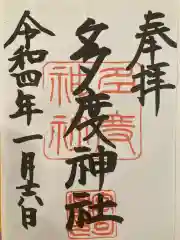 奉拝
多度神社
令和四年一月十六日